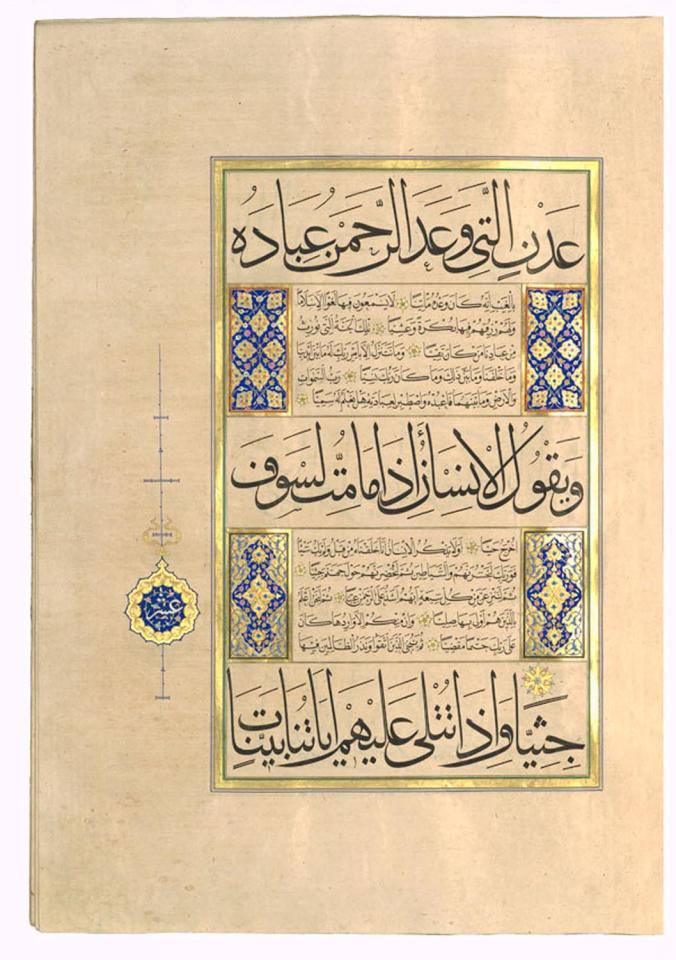 عَدْنِ الَّتِي وَعَدَ الرَّحْمَنُ عِبَادَهُ
بالغيب انه كان وعده مأتيا لا يسمعون فيها لغوا الا سلاما
ولهم رزقهم فيها بكرة وعشيا تلك الجنة التي نورث
من عبادنا من كان تقيا وما نتنزل الا بامر ربك له ما بين ايدينا
وما خلفنا وما بين ذلك وما كان ربك نسيا رب السموات
والارض وما بينهما فاعبده واصطبر لعبادته هل تعلم له سميا
وَيَقُولُ الْاِنْسَانُ أَذَا مَا مِتُّ لَسَوْفَ
اخرج حيا اولا يذكر الانسان انا خلقناه من قبل ولم يك شيئا
فوربك لنحشرنهم والشياطين ثم لنحضرنهم حول جهنم جثيا
ثم لننزعن من كل شيعة ايهم اشد على الرحمن عتيا ثم لنحن اعلم
بالذين هم اولى بها صليا وان منكم الا واردها كان
على ربك حتما مقضيا ثم ننجي الذين اتقوا ونذر الظالمين فيها
جِثِيًّا وَاِذَا تُتْلَى عَلَيْهِمْ اٰيَاتُنَا بَيِّنَاتٍ
عشر